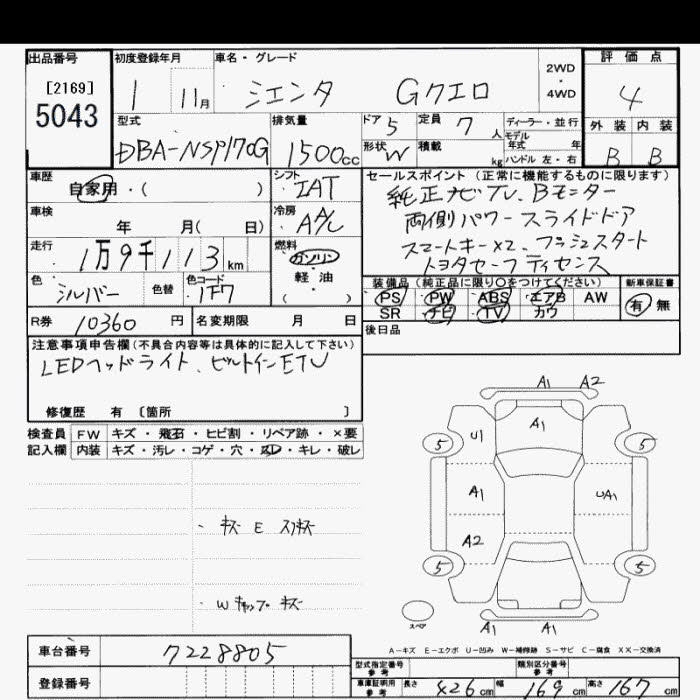 出品番号 初度登録年月 車名・グレード 2WD・4WD 評価点
[2169]
5043 1 11月 シエンタ Gクエロ 4
型式 排気量 ドア 5 定員 7 人 ディーラー・並行 外装 内装
モデル年式 年
DBA-NSP170G 1500cc 形状 W 積載 kg ハンドル 左・右 B B
車歴 自家用・( ) シフト IAT セールスポイント(正常に機能するものに限ります)
純正ナビTV、Bモニター
車検 年 月( 日) 冷房 A/C 両側パワースライドドア
走行 1万9千113km 燃料 ガソリン・軽油( ) スマートキー×2、プッシュスタート
トヨタセーフティセンス
色 シルバー 色替 色コード 1F7 装備品(純正品に限り○をつけてください) 新車保証書
PS PW ABS エアB AW 有 無
SR ナビ TV カワ
R券 10360 円 名変期限 月 日 後日品
注意事項申告欄(不具合内容等は具体的に記入して下さい)
LEDヘッドライト、ビルトインETC
修復歴 有 〔箇所 〕
検査員 FW キズ・飛石・ヒビ割・リペア跡・×要
記入欄 内装 キズ・汚レ・コゲ・穴・スレ・キレ・破レ
A1 A2
U1 A1
5 5
A1 UA1
A2
5 5
・キズ E スリキズ
・Wキャップ キズ
スペア A1 A1
A-キズ E-エクボ U-凹み W-補修跡 S-サビ C-腐食 XX-交換済
車台番号 7228805
型式指定番号 参考 類別区分番号 参考
登録番号 車庫証明用 参考 長さ 426 cm 幅 169 cm 高さ 167 cm